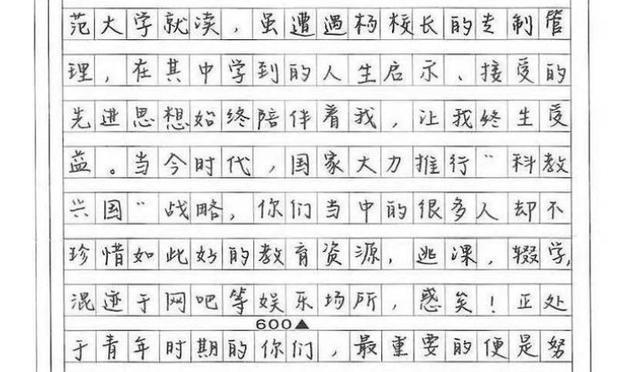 范大学就读，虽遭遇杨校长的专制管
理，在其中学到的人生启示、接受的
先进思想始终陪伴着我，让我终生受
益。当今时代，国家大力推行"科教
兴国"战略，你们当中的很多人却不
珍惜如此好的教育资源，逃课，辍学，
混迹于网吧等娱乐场所，惑矣！正处
600▲
于青年时期的你们，最重要的便是努